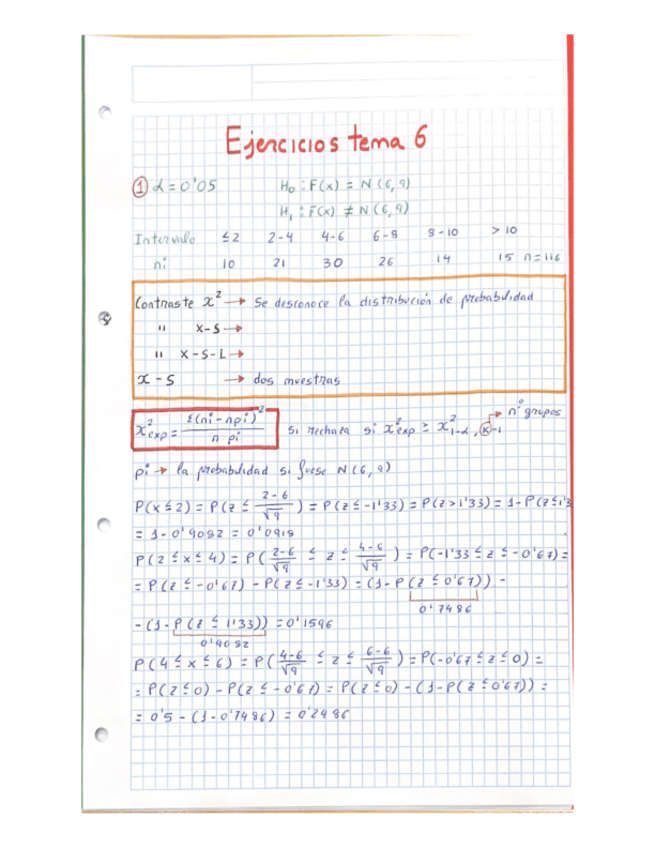 Ejercicios tema 6
① α = 0'05 H₀ : F(x) = N (6, 9)
H₁ : F(x) ≠ N (6, 9)
Intervalo ≤2 2-4 4-6 6-8 8-10 > 10
ni 10 21 30 26 14 15 n = 116
Contraste x² → Se desconoce la distribución de probabilidad
" x-S →
" x-S-L →
x-S → dos muestras
x²exp = Σ(ni - npi)² / n pi Si rechaza si x²exp ≥ x²1-α, K-1 → nº grupos
pi → la probabilidad si fuese N (6, 9)
P(x ≤ 2) = P(z ≤ (2-6)/√9) = P(z ≤ -1'33) = P(z > 1'33) = 1 - P(z ≤ 1'3
= 1 - 0'9082 = 0'0918
P(2 ≤ x ≤ 4) = P((2-6)/√9 ≤ z ≤ (4-6)/√9) = P(-1'33 ≤ z ≤ -0'67) =
= P(z ≤ -0'67) - P(z ≤ -1'33) = (1 - P(z ≤ 0'67)) -
0'7486
- (1 - P(z ≤ 1'33)) = 0'1596
0'9082
P(4 ≤ x ≤ 6) = P((4-6)/√9 ≤ z ≤ (6-6)/√9) = P(-0'67 ≤ z ≤ 0) =
= P(z ≤ 0) - P(z ≤ -0'67) = P(z ≤ 0) - (1 - P(z ≤ 0'67)) =
= 0'5 - (1 - 0'7486) = 0'2486